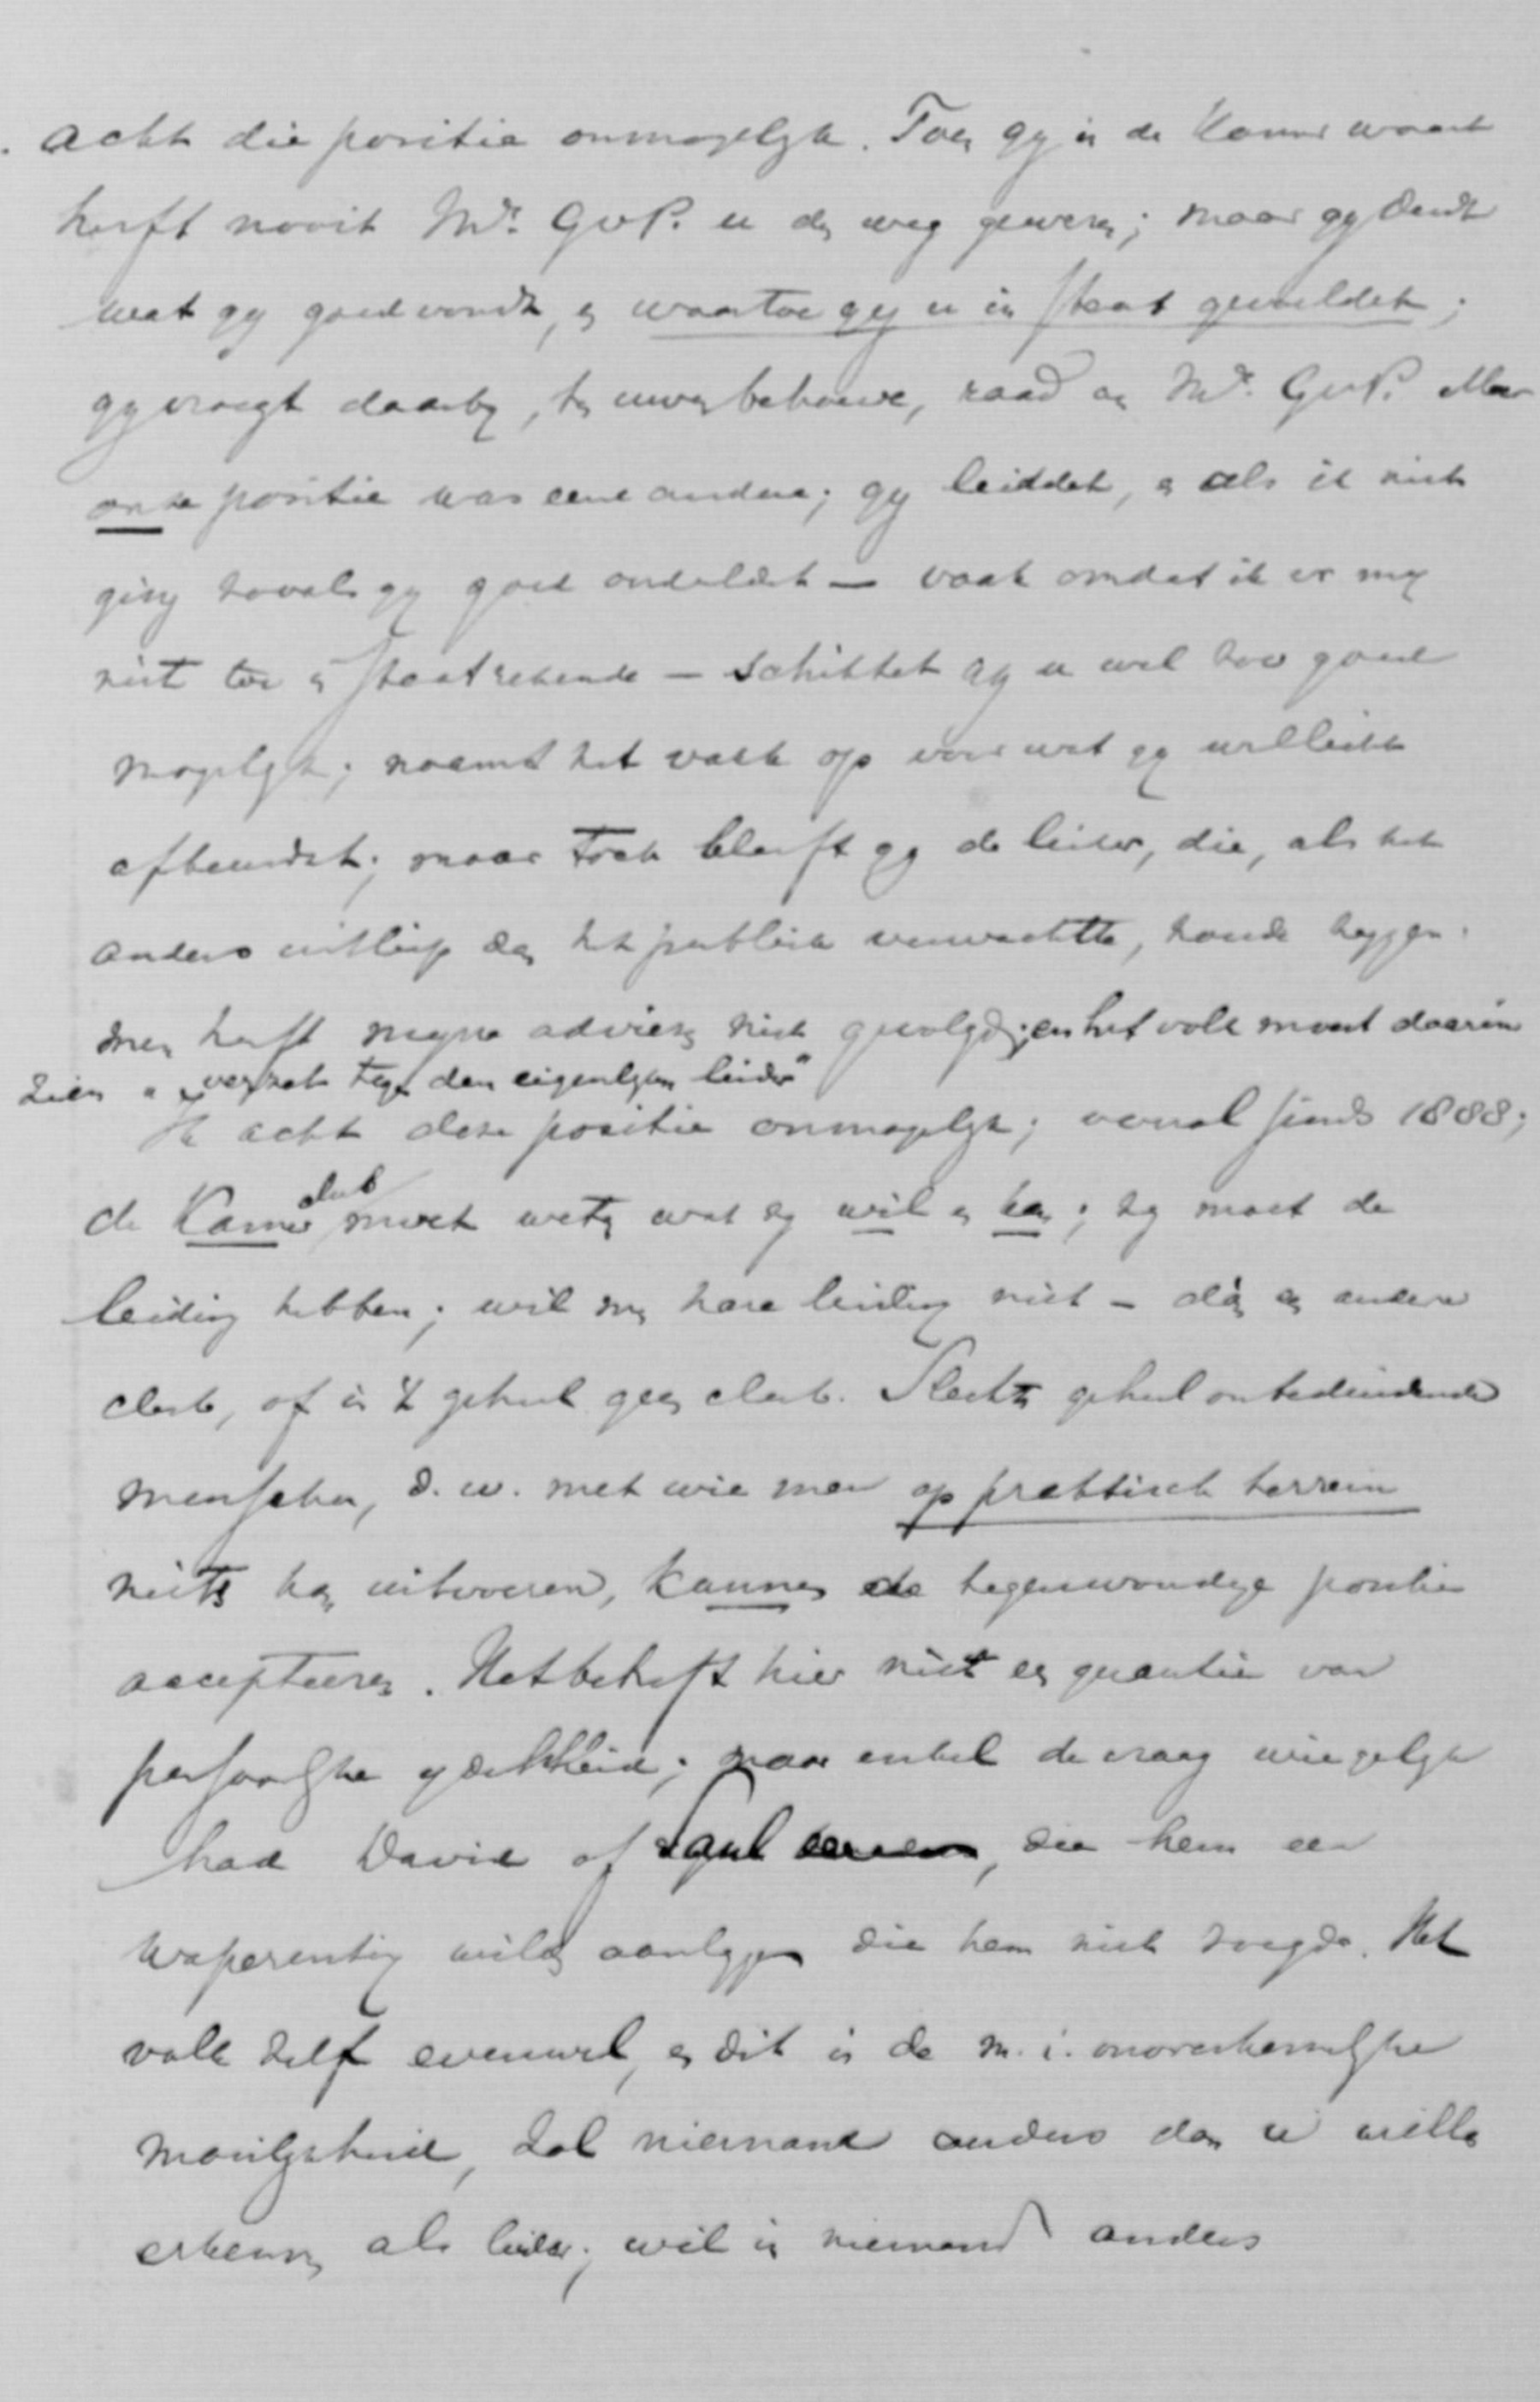 acht die positie onmogelyk. Toen gy in de Kamer waart
heeft nooit Mr. GvP. u in den weg geweest; maar gy deedt
wat gy goed vondt, en waartoe gy u in staat gevoeldet;
gy vroegt daarby, ten uwen behoeve, raad aan Mr. GvP. Maar
onze positie was eene andere; gy leiddet, en als it niet
ging zooals gy goed oordeeldet — vaak omdat ik er my
niet toe in staat rekende — schiktet gy u wel zoo goed
mogelyk; naamt het vaak op voor wat gy wellicht
afkeurdet; maar toch bleeft gy de leider, die, als het
anders uitliep dan het publiek verwachtte, konde zeggen:
men heeft myne adviezen niet gevolgd; en het volk moest daarin
zien "verzet tegen den eigenlyken leider"
Ik acht deze positie onmogelyk; vooral sinds 1888;
de Kamerclub moet weten wat zy wil en kan; zy moet de
leiding hebben; wil men hare leiding niet — dán een andere
club, of in 't geheel geen club. Slechts geheel onbeduidende
menschen, d. w. met wie men op praktisch terrein
niets kan uitvoeren, kunnen de tegenwoordige positie
accepteeren. Het betreft hier niet een quaestie van
persoonlyke ydelheid; maar enkel de vraag wie gelyk
had David of Saul, die hem een
wapenrusting wilde aanleggen die hem niet voegde. Het
volk zelf evenwel, en dit is de m. i. onoverkomelyke
moeilykheid, zal niemand anders dan u willen
erkennen als leider; wil in niemand anders